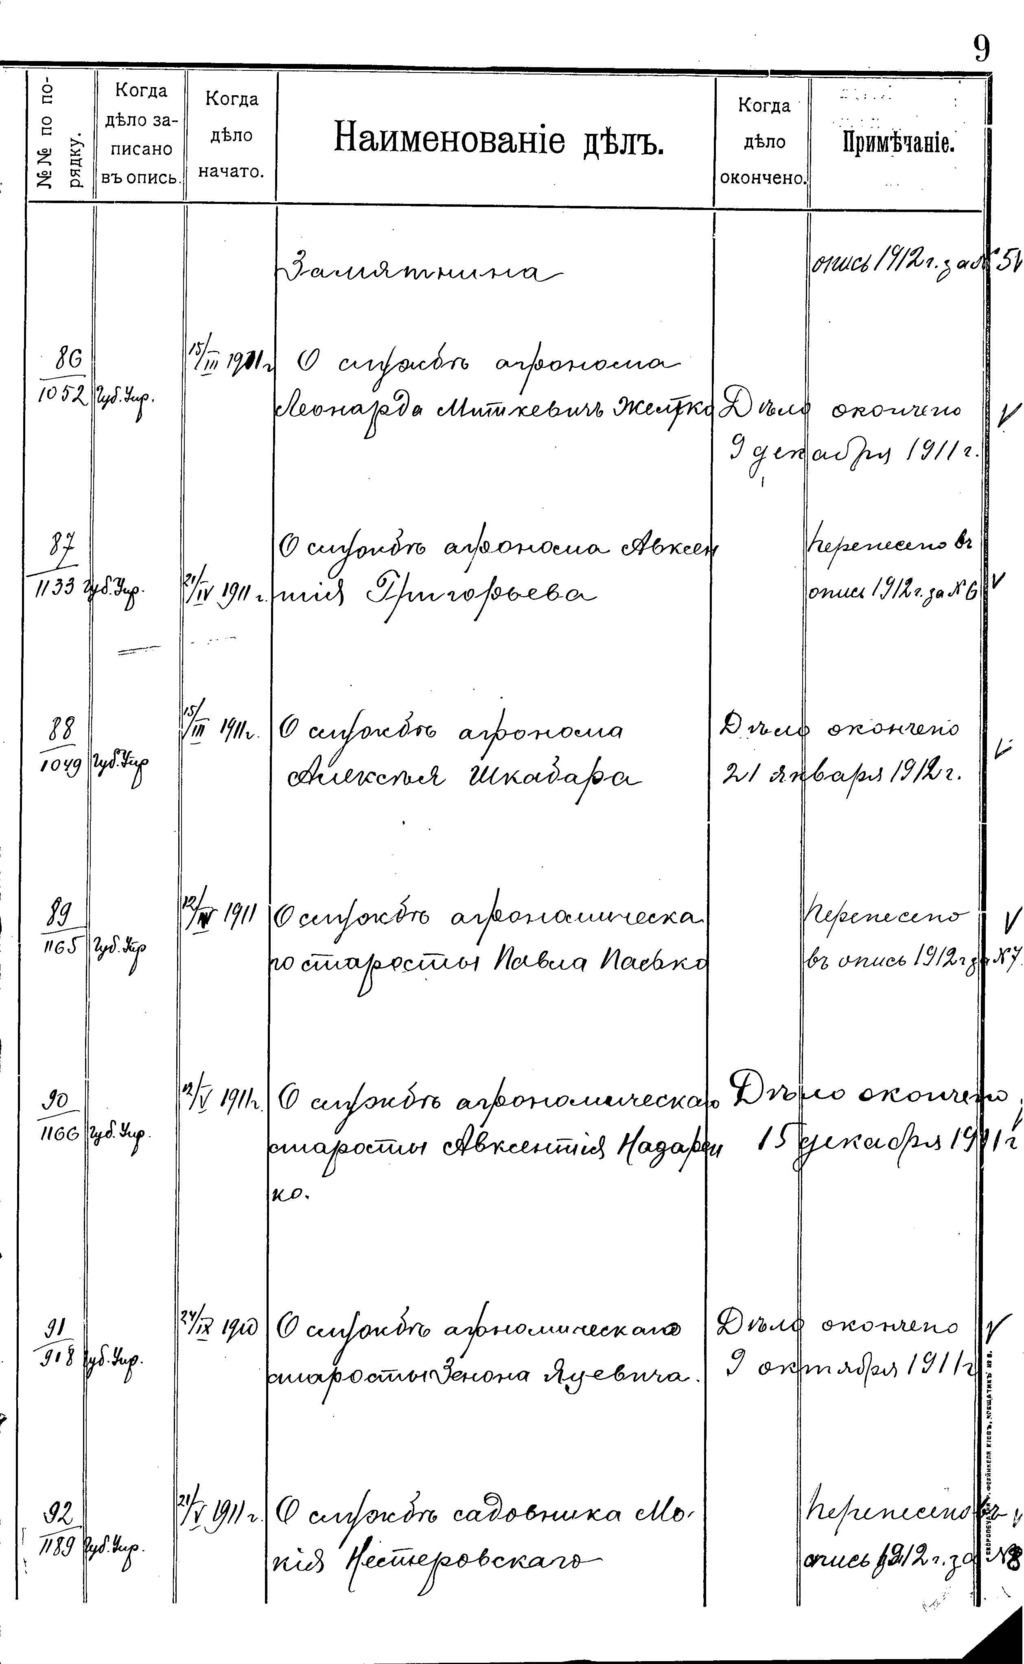 9
№№ по по-
рядку.
Когда
дѣло за-
писано
въ опись.
Когда
дѣло
начато.
Наименованіе дѣлъ.
Когда
дѣло
окончено.
Примѣчаніе.
Замятнина
опись 1912 г. за № 5 V
86
1052 Губ. Упр.
15/III 1911 г
О службѣ агронома
Леонарда Миткевичъ Желтко
Дѣло окончено V
9 декабря 1911 г.
87
1133 Губ. Упр.
21/IV 1911 г.
О службѣ агронома Авксен
тія Григорьева
Перенесено въ
опись 1912 г. за № 6 V
88
1049 Губ. Упр
15/III 1911 г.
О службѣ агронома
Алексѣя Шкабара
Дѣло окончено V
21 января 1912 г.
89
1165 Губ. Упр
12/IV 1911
О службѣ агрономическа
го старосты Павла Пасько
Перенесено V
въ опись 1912 г за № 7
90
1166 Губ. Упр.
12/V 1911 г.
О службѣ агрономическаго
старосты Авксентія Надарен
ко.
Дѣло окончено
15 декабря 1911 г V
91
918 Губ. Упр.
24/IX 1910
О службѣ агрономическаго
старосты Зенона Яцевича.
Дѣло окончено V
9 октября 1911 г
92
1189 Губ. Упр.
21/V 1911 г.
О службѣ садовника Мо-
кія Нестеровскаго
Перенесено въ V
опись 1912 г. за № 8